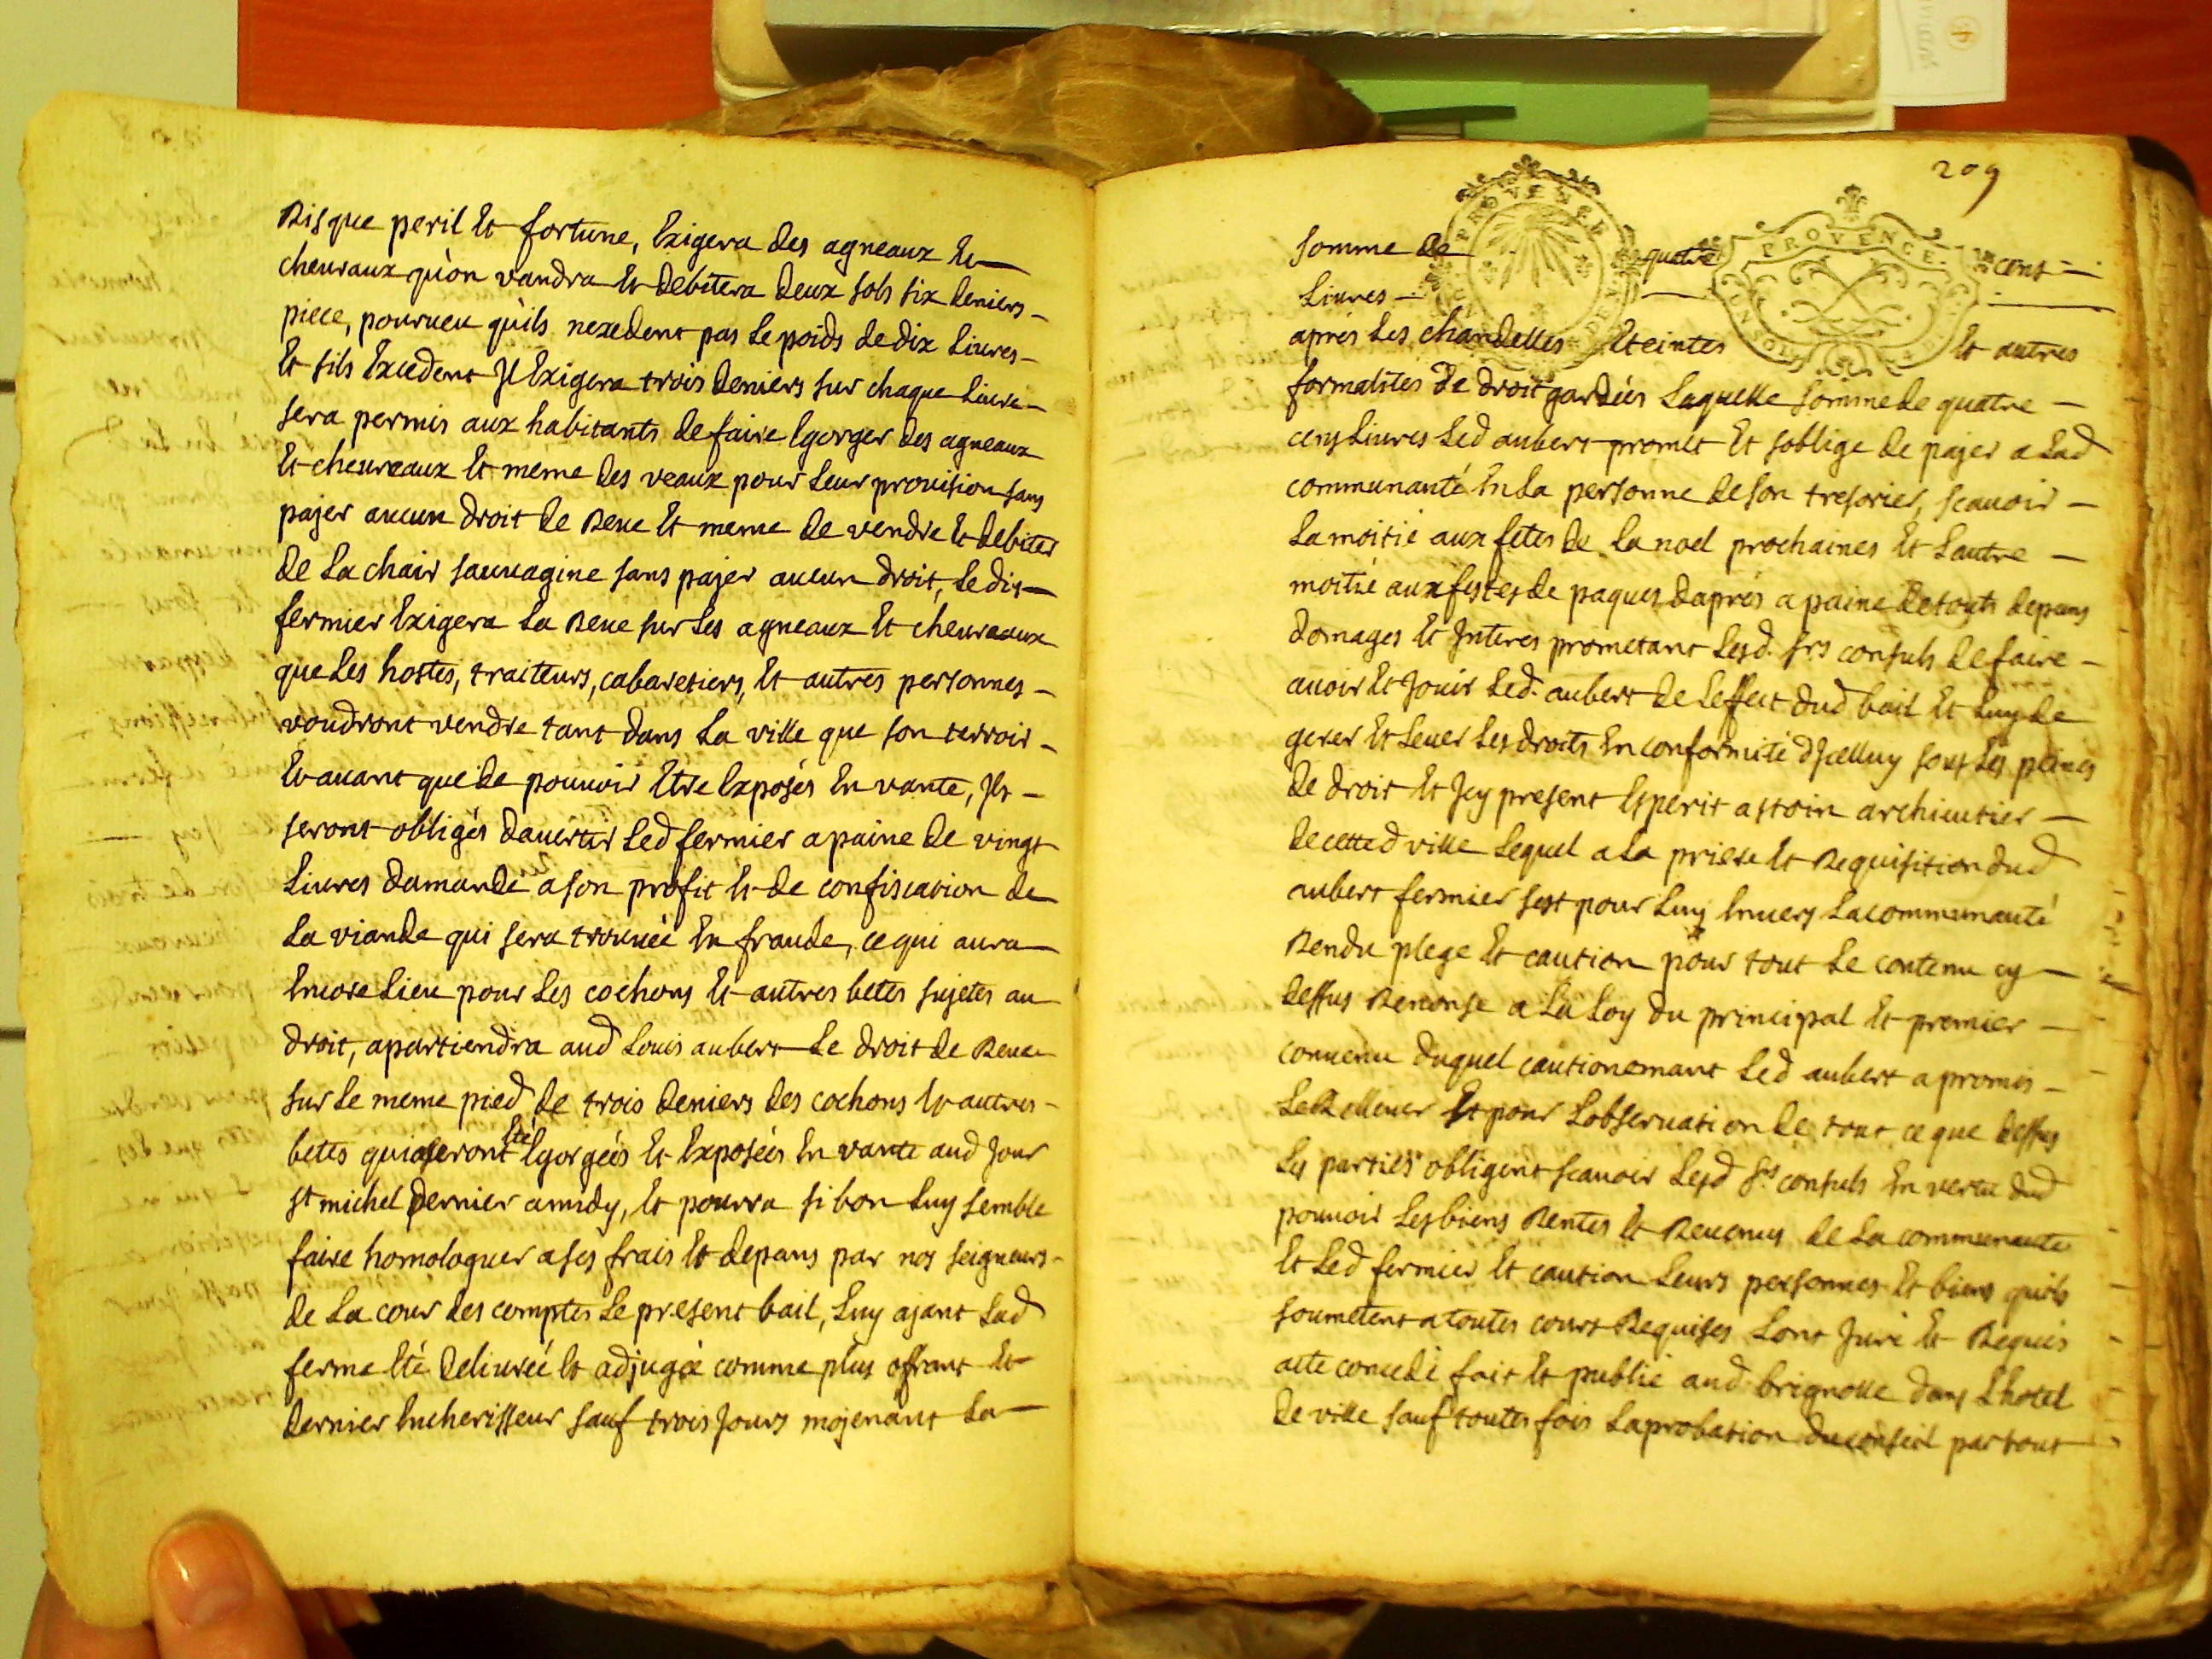 Risque peril et fortune, Exigera des agneaux et
cheuraux qu'on vandra et debitera deux sols six deniers
piece, pourueu qu'ils nexedent pas le poids de dix Liures
Et sils Excedent Jl Exigera trois deniers sur chaque Liure
sera permis aux habitants de faire Egorger des agneaux
Et cheureaux Et meme des veaux pour Leur prouision sans
pajer aucun droit de Reue Et meme de vendre Et debiter
de La chair sauuagine sans pajer aucun droit, Le dit
fermier Exigera La Reue sur Les agneaux Et cheureaux
que Les hostes, traiteurs, cabaretiers, Et autres personnes
voudront vendre tant dans La ville que son terroir
Et auant que de pouuoir Etre Exposés En vante, Jls
seront obligés dauertir Led fermier a paine de vingt
Liures damande a son profit Et de confiscation de
La viande qui sera trouuée En fraude, ce qui aura
Encore Lieu pour Les cochons Et autres betes sujetes au
droit, apartiendra aud Louis aubert Le droit de Reue
sur Le meme pied de trois deniers des cochons Et autres
betes qui seront Eté Egorgées Et Exposées En vante aud Jour
st michel dernier a midy, Et pourra si bon Luy semble
faire homologuer a ses frais Et depans par nos seigneurs
de La cour des comptes Le present bail, Luy ajant Lad
ferme Eté deliurée Et adjugée comme plus offrant Et
dernier Encherisseur sauf trois Jours mojenant La
209
PROVENCE
PROVENCE
somme de quatre cens
Liures
aprés Les chandelles Eteintes Et autres
formalites de droit gardées Laquelle somme de quatre
cens Liures Led aubert promet Et soblige de pajer a Lad
communauté En La personne de son tresorier, scauoir
La moitié aux fetes de La noel prochaines Et Lautre
moitié aux festes de paques daprés a paine de touts depans
domages Et Jnteres prometant Lesd. srs consuls de faire
auoir Et Jouir Led. aubert de Leffect dud bail Et Luy de
gerer Et Leuer Les droits En conformité dJcelluy sous Les peines
de droit Et Jcy present Esperit astoin archiuitier
de cetted ville Lequel a La priere Et Requisition dud
aubert fermier sest pour Luy Enuers La communauté
Rendu plege Et caution pour tout Le contenu cy
dessus Renonse a La Loy du principal Et premier
conuenu duquel cautionemant Led aubert a promis
Le Relleuer Et pour Lobseruation de tout ce que dessus
Les parties obligent scauoir Lesd srs consuls En vertu dud
pouuoir Les biens Rentes Et Reuenus de La communauté
Et Led fermier Et caution Leurs personnes Et biens quils
soumetent a toutes cours Requises Lont Juré Et Requis
acte concedé fait Et publié aud brignolle dans Lhotel
de ville sauf toutes fois Laprobation du conseil par tout